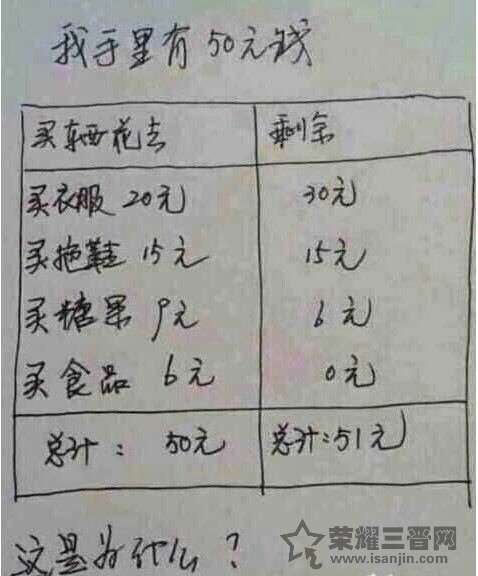 我手里有50元钱
买东西花去 剩余
买衣服 20元 30元
买拖鞋 15元 15元
买糖果 9元 6元
买食品 6元 0元
总计： 50元 总计：51元
这是为什么？
荣耀三晋网
www.isanjin.com